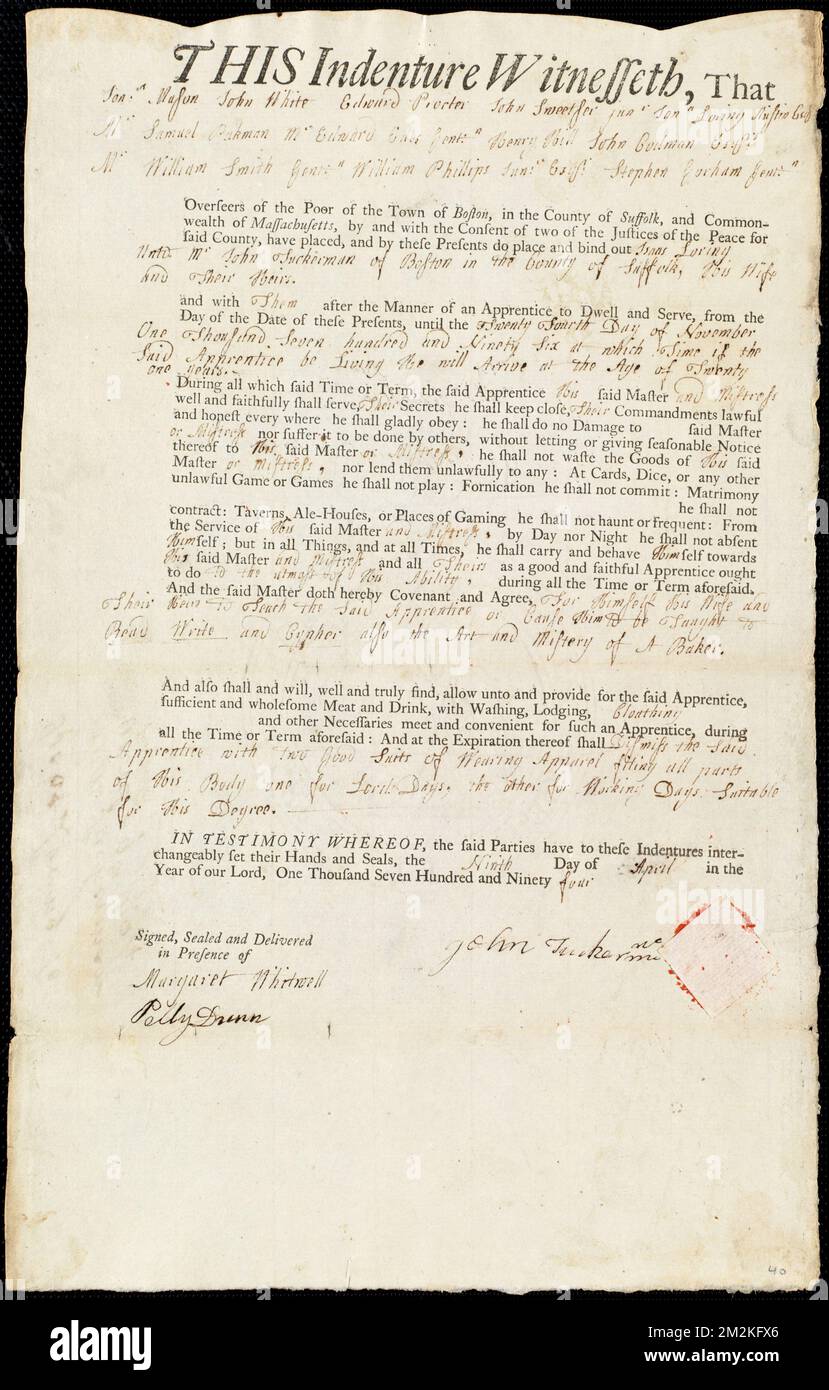 THIS Indenture Witnesseth, That
Jonan Mason John White Edward Procter John Sweetser junr Jonn Loring Austin Esqrs
Mr Samuel Pakman Mr Edward Edes Gentn Henry Hill John Codman Esqrs
Mr William Smith Gentn William Phillips Junr Esqr. Stephen Gorham Gentn
Overseers of the Poor of the Town of Boston, in the County of Suffolk, and Common-
wealth of Massachusetts, by and with the Consent of two of the Justices of the Peace for
said County, have placed, and by these Presents do place and bind out Isaac Loring
Unto Mr John Tuckerman of Boston in the County of Suffolk, His Wife
and Their Heirs.
and with Them after the Manner of an Apprentice to Dwell and Serve, from the
Day of the Date of these Presents, until the Twenty Fourth Day of November
One Thousand Seven hundred and Ninety Six at which Time if the
Said Apprentice be Living He will Arrive at the Age of Twenty
one years.
During all which said Time or Term, the said Apprentice His said Master and Mistress
well and faithfully shall serve, Their Secrets he shall keep close, Their Commandments lawful
and honest every where he shall gladly obey: he shall do no Damage to said Master
or Mistress nor suffer it to be done by others, without letting or giving seasonable Notice
thereof to His said Master or Mistress, he shall not waste the Goods of His said
Master or Mistress, nor lend them unlawfully to any: At Cards, Dice, or any other
unlawful Game or Games he shall not play: Fornication he shall not commit: Matrimony
he shall not
contract: Taverns, Ale-Houses, or Places of Gaming he shall not haunt or frequent: From
the Service of His said Master and Mistress, by Day nor Night he shall not absent
Himself; but in all Things, and at all Times, he shall carry and behave Himself towards
His said Master and Mistress and all Theirs as a good and faithful Apprentice ought
to do to the utmost of His Ability, during all the Time or Term aforesaid.
And the said Master doth hereby Covenant and Agree, For Himself His Wife and
Their Heirs to Teach the Said Apprentice or Cause Him to be Taught to
Read Write and Cypher also the Art and Mistery of A Baker.
And also shall and will, well and truly find, allow unto and provide for the said Apprentice,
sufficient and wholesome Meat and Drink, with Washing, Lodging, Cloathing
and other Necessaries meet and convenient for such an Apprentice, during
all the Time or Term aforesaid: And at the Expiration thereof shall Dismiss the Said
Apprentice with Two Good Suits of Wearing Apparel fiting all parts
of His Body one for Lords Days, the other for Working Days Suitable
for His Degree.
IN TESTIMONY WHEREOF, the said Parties have to these Indentures inter-
changeably set their Hands and Seals, the Ninth Day of April in the
Year of our Lord, One Thousand Seven Hundred and Ninety four
Signed, Sealed and Delivered
in Presence of
John Tuckerman
Margaret Whitwell
Polly Dunn
40
alamy
Image ID: 2M2KFX6
www.alamy.com